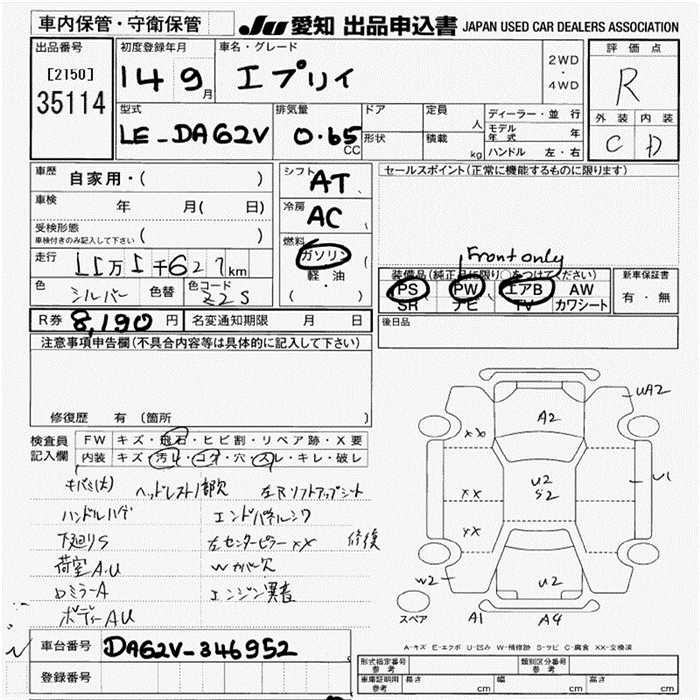 車内保管・守衛保管 JU 愛知 出品申込書 JAPAN USED CAR DEALERS ASSOCIATION
出品番号 初度登録年月 車名・グレード 評価点
[2150] 35114 14 9月 エブリイ 2WD・4WD R
型式 排気量 ドア 定員 人 ディーラー・並行 外装 内装
LE-DA62V 0.65 CC 形状 積載 kg モデル年式 年 C D
ハンドル 左・右
車歴 自家用・( ) シフト AT セールスポイント(正常に機能するものに限ります)
車検 年 月( 日) 冷房 AC
受検形態 車検付きのみ記入して下さい ( ) 燃料
走行 11万1千627km ガソリン Front only
軽・油 装備品(純正品に限り○をつけてください) 新車保証書
色 シルバー 色替 色コード Z2S ( ・ ) PS PW エアB AW 有・無
SR ナビ TV カワシート
R券 8,190円 名変通知期限 月 日 後日品
注意事項申告欄(不具合内容等は具体的に記入して下さい)
修復歴 有 (箇所
検査員記入欄 FW キズ・飛石・ヒビ割・リペア跡・X要
内装 キズ・汚レ・コゲ・穴・スレ・キレ・破レ
ヘッドレスト1部欠 左Rリフトアップシート
ハンドルハゲ エンドパネルシワ
下廻りS 左センターピラーXX 修復
荷室A.U Wカバー欠
ロミラーA エンジン異音
ボディーAU
UA2
A2
XX
U2
S2
U1
XX
XX
W2
U2
スペア A1 A4
A-キズ E-エクボ U-凹み W-補修跡 S-サビ C-腐食 XX-交換済
車台番号 DA62V-346952
登録番号
形式指定番号 参考 類別区分番号 参考
車庫証明用 参考 長さ cm 幅 cm 高さ cm